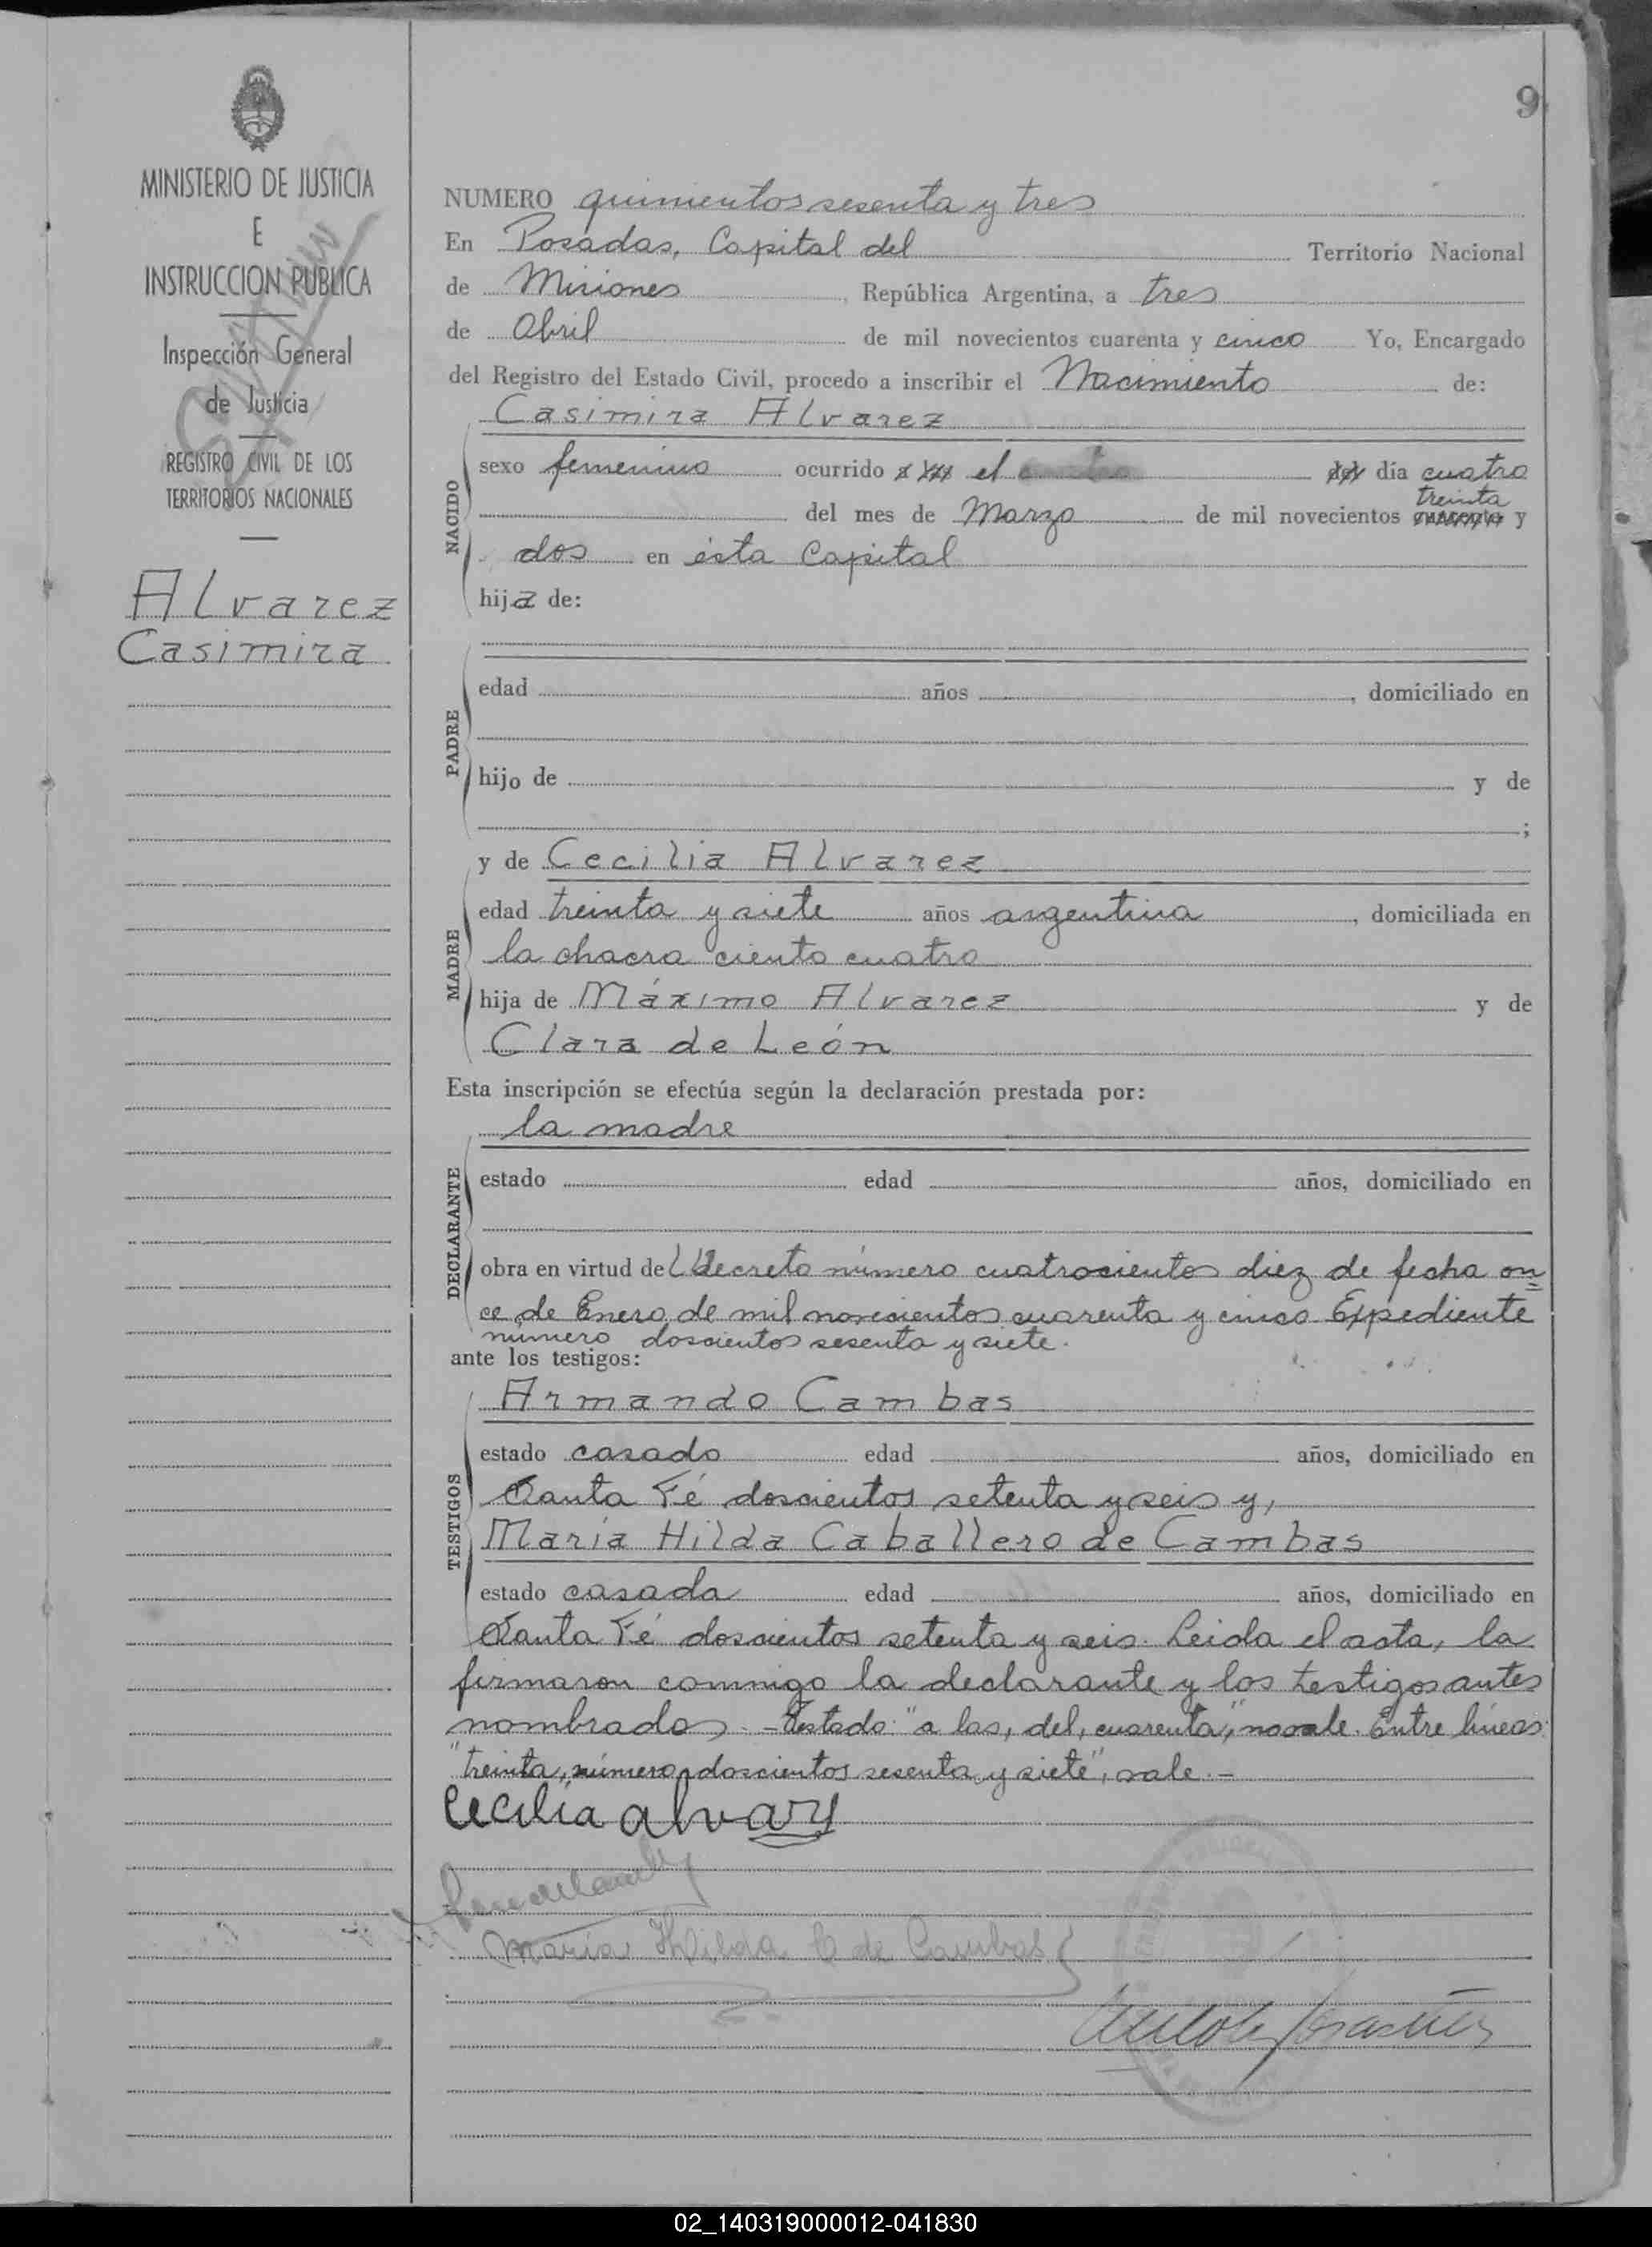 9
MINISTERIO DE JUSTICIA
E
INSTRUCCION PUBLICA
Inspección General
de Justicia
REGISTRO CIVIL DE LOS
TERRITORIOS NACIONALES
Alvarez
Casimira
NUMERO quinientos sesenta y tres
En Posadas, Capital del Territorio Nacional
de Misiones, República Argentina, a tres
de Abril de mil novecientos cuarenta y cinco Yo, Encargado
del Registro del Estado Civil, procedo a inscribir el Nacimiento de:
Casimira Alvarez
NACIDO
sexo femenino ocurrido a las el del día cuatro
treinta
del mes de Marzo de mil novecientos cuarenta y
dos en ésta Capital
hija de:
PADRE
edad años , domiciliado en
hijo de y de
;
y de Cecilia Alvarez
MADRE
edad treinta y siete años argentina, domiciliada en
la chacra ciento cuatro
hija de Máximo Alvarez y de
Clara de León
Esta inscripción se efectúa según la declaración prestada por:
la madre
DECLARANTE
estado edad años, domiciliado en
obra en virtud del Decreto número cuatrocientos diez de fecha on=
ce de Enero de mil novecientos cuarenta y cinco Expediente
número doscientos sesenta y siete.
ante los testigos:
Armando Cambas
TESTIGOS
estado casado edad años, domiciliado en
Santa Fé doscientos setenta y seis y,
María Hilda Caballero de Cambas
estado casada edad años, domiciliado en
Santa Fé doscientos setenta y seis. Leida el acta, la
firmaron conmigo la declarante y los testigos antes
nombrados. - Testado: "a las, del, cuarenta", no vale. Entre líneas:
"treinta, número doscientos sesenta y siete", vale. -
Cecilia alvarez
María Hilda C de Cambas
02_140319000012-041830